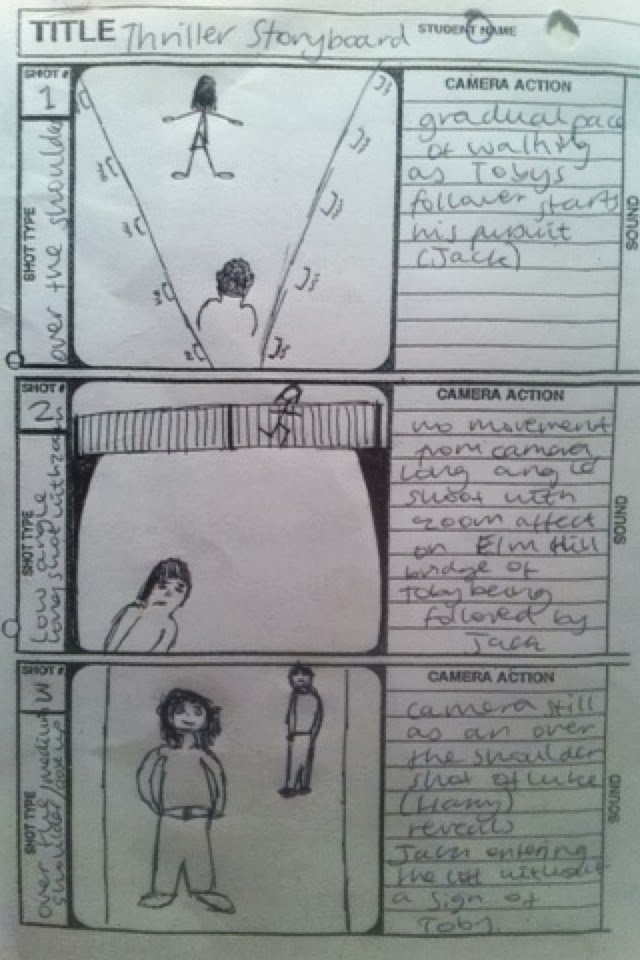 TITLE Thriller Storyboard STUDENT NAME
SHOT #
1
SHOT TYPE
over the shoulder
CAMERA ACTION
gradual pace
of walking
as Tobys
follower starts
his pursuit
(Jack)
SOUND
SHOT #
2
SHOT TYPE
Low angle
long shot with zoom
CAMERA ACTION
no movement
from camera
long angle
shoot with
zoom affect
on Elm Hill
bridge of
Toby being
followed by
Jack
SOUND
SHOT #
3
SHOT TYPE
over the / medium
shoulder / close up
CAMERA ACTION
camera still
as an over
the shoulder
shot of Luke
(Harry)
reveals
Jack entering
the lift without
a sign of
Toby.
SOUND